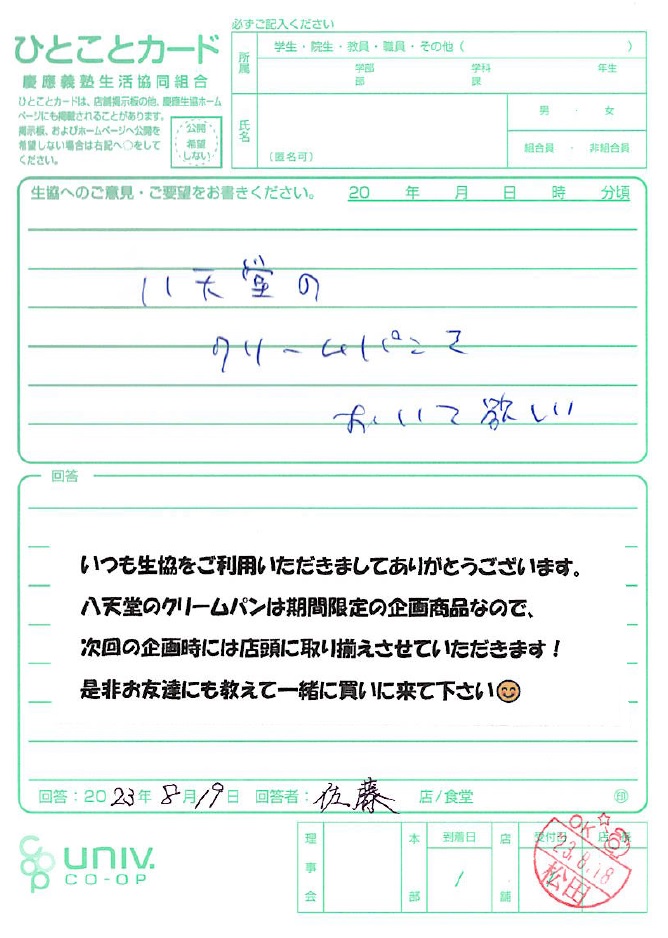 必ずご記入ください
ひとことカード
慶應義塾生活協同組合
ひとことカードは、店舗掲示板の他、慶應生協ホーム
ページにも掲載されることがあります。
掲示板、およびホームページへ公開を
希望しない場合は右記へ○をして
ください。
公開
希望
しない
所属
学生・院生・教員・職員・その他（ ）
学部 学科 年生
部 課
氏名
（匿名可）
男 ・ 女
組合員 ・ 非組合員
生協へのご意見・ご要望をお書きください。 20 年 月 日 時 分頃
八天堂の
クリームパンを
おいて欲しい
回答
いつも生協をご利用いただきましてありがとうございます。
八天堂のクリームパンは期間限定の企画商品なので、
次回の企画時には店頭に取り揃えさせていただきます！
是非お友達にも教えて一緒に買いに来て下さい😊
回答：2023年8月19日 回答者：佐藤 店/食堂 ㊞
coop UNIV.
CO-OP
理事会
本部
到着日
/
店舗
受付日
OK☆
23.8.18
松田